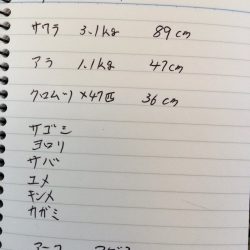 サワラ 3.1kg 89cm
アラ 1.1kg 47cm
クロムツ×47匹 36cm
サゴシ
ヨロリ
サバ
ユメ
キンメ
カガミ